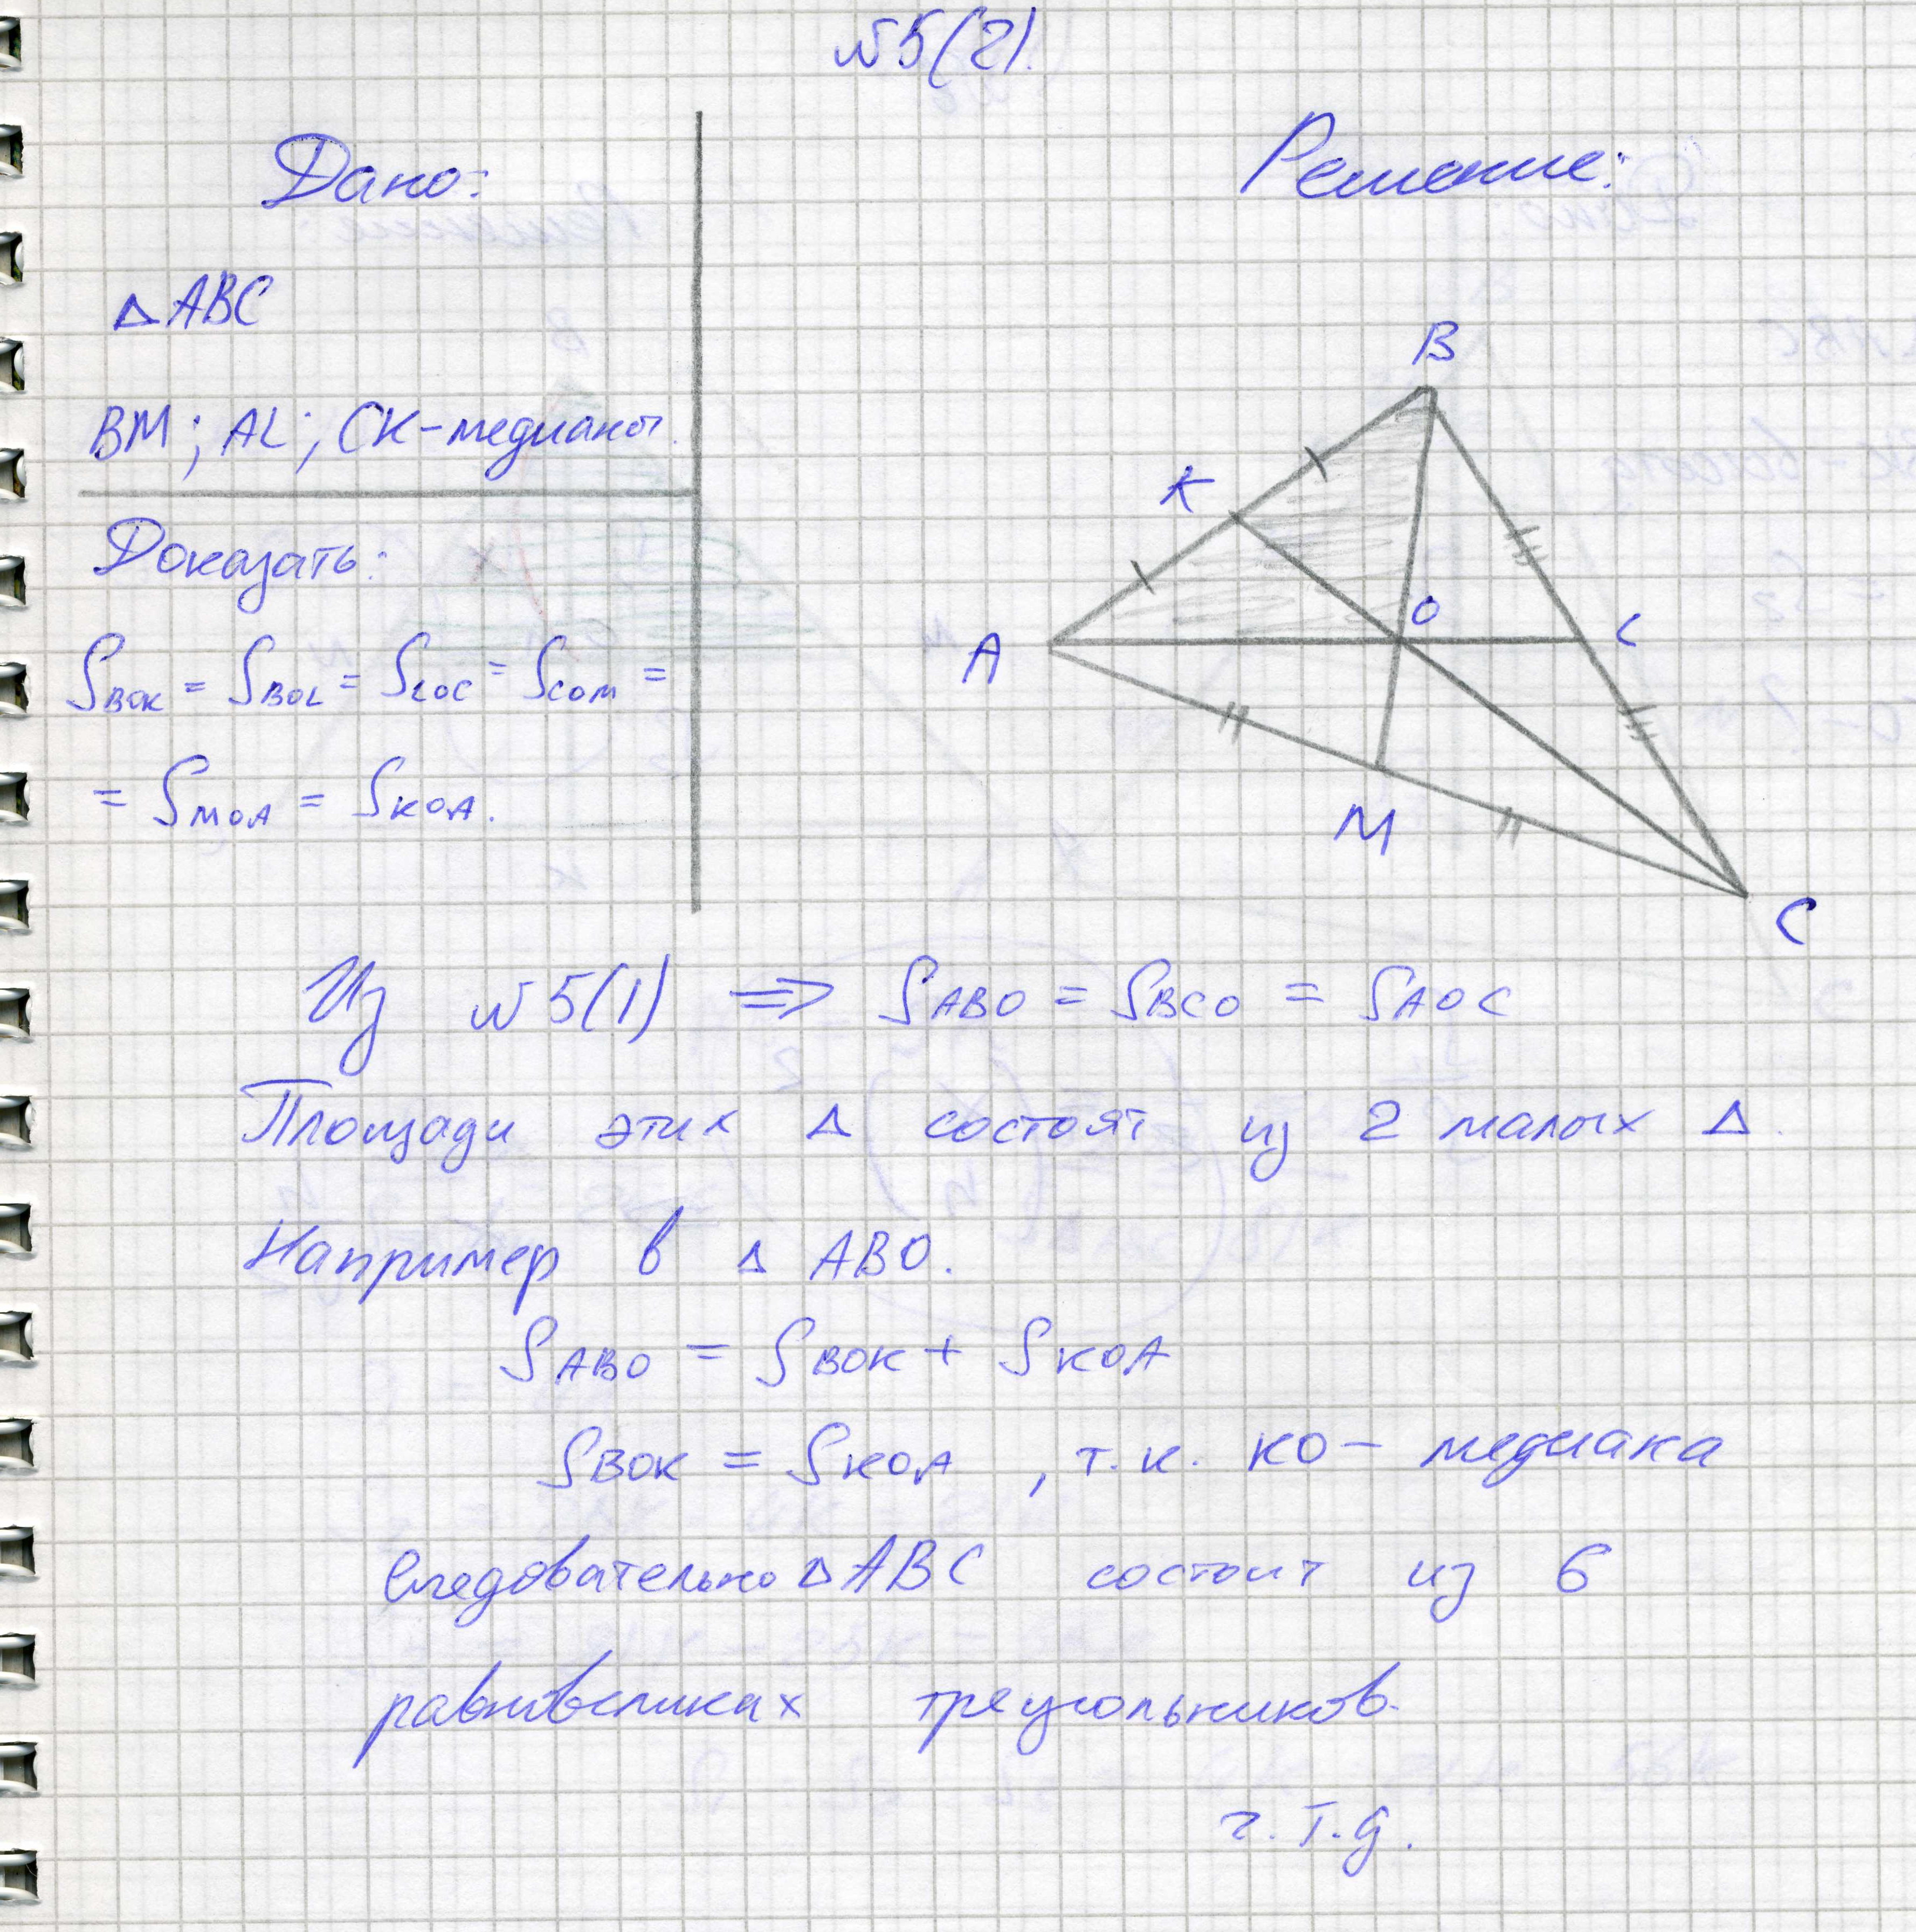 №5(2).
Дано:
△ABC
BM; AL; CK-медианы.
Доказать:
S BOK = S BOL = S LOC = S COM =
= S MOA = S KOA.
Решение:
B
K
O
L
A
M
C
Из №5(1) ⇒ S ABO = S BCO = S AOC
Площади этих △ состоят из 2 малых △.
Например в △ ABO.
S ABO = S BOK + S KOA
S BOK = S KOA , т.к. KO - медиана
Следовательно △ABC состоит из 6
равновеликих треугольников.
ч.т.д.